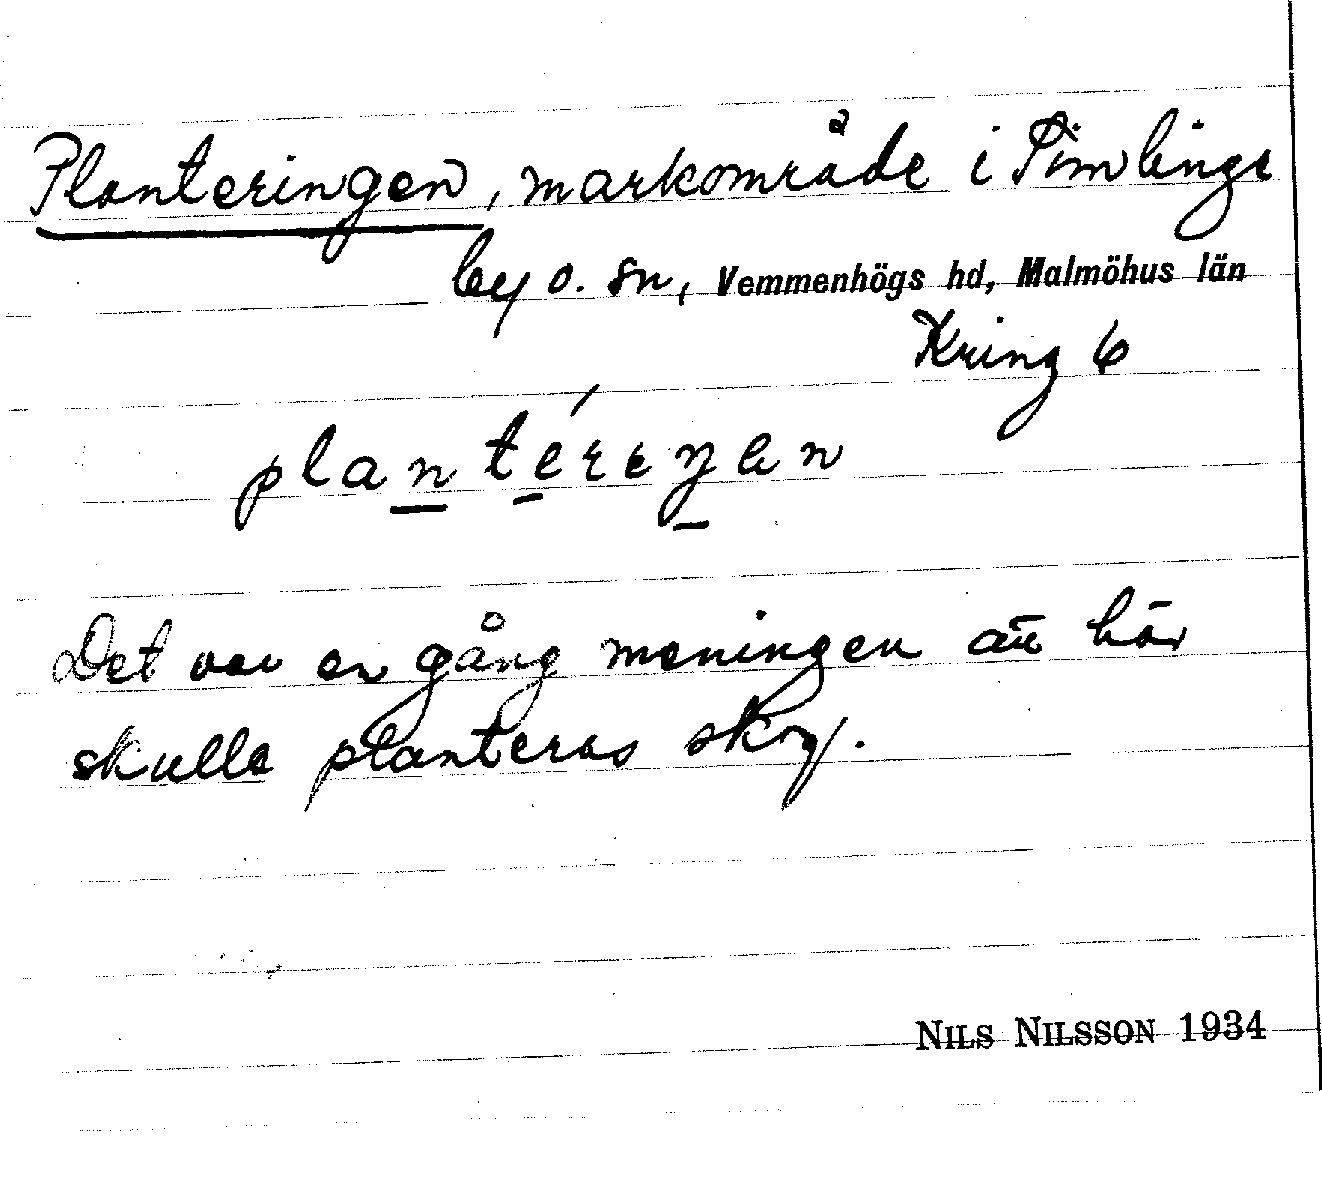 Planteringen, markområde i Simlinge
by o. sn, Vemmenhögs hd, Malmöhus län
Kring 6
Det var en gång meningen att här
skulle planteras skog.
NILS NILSSON 1934